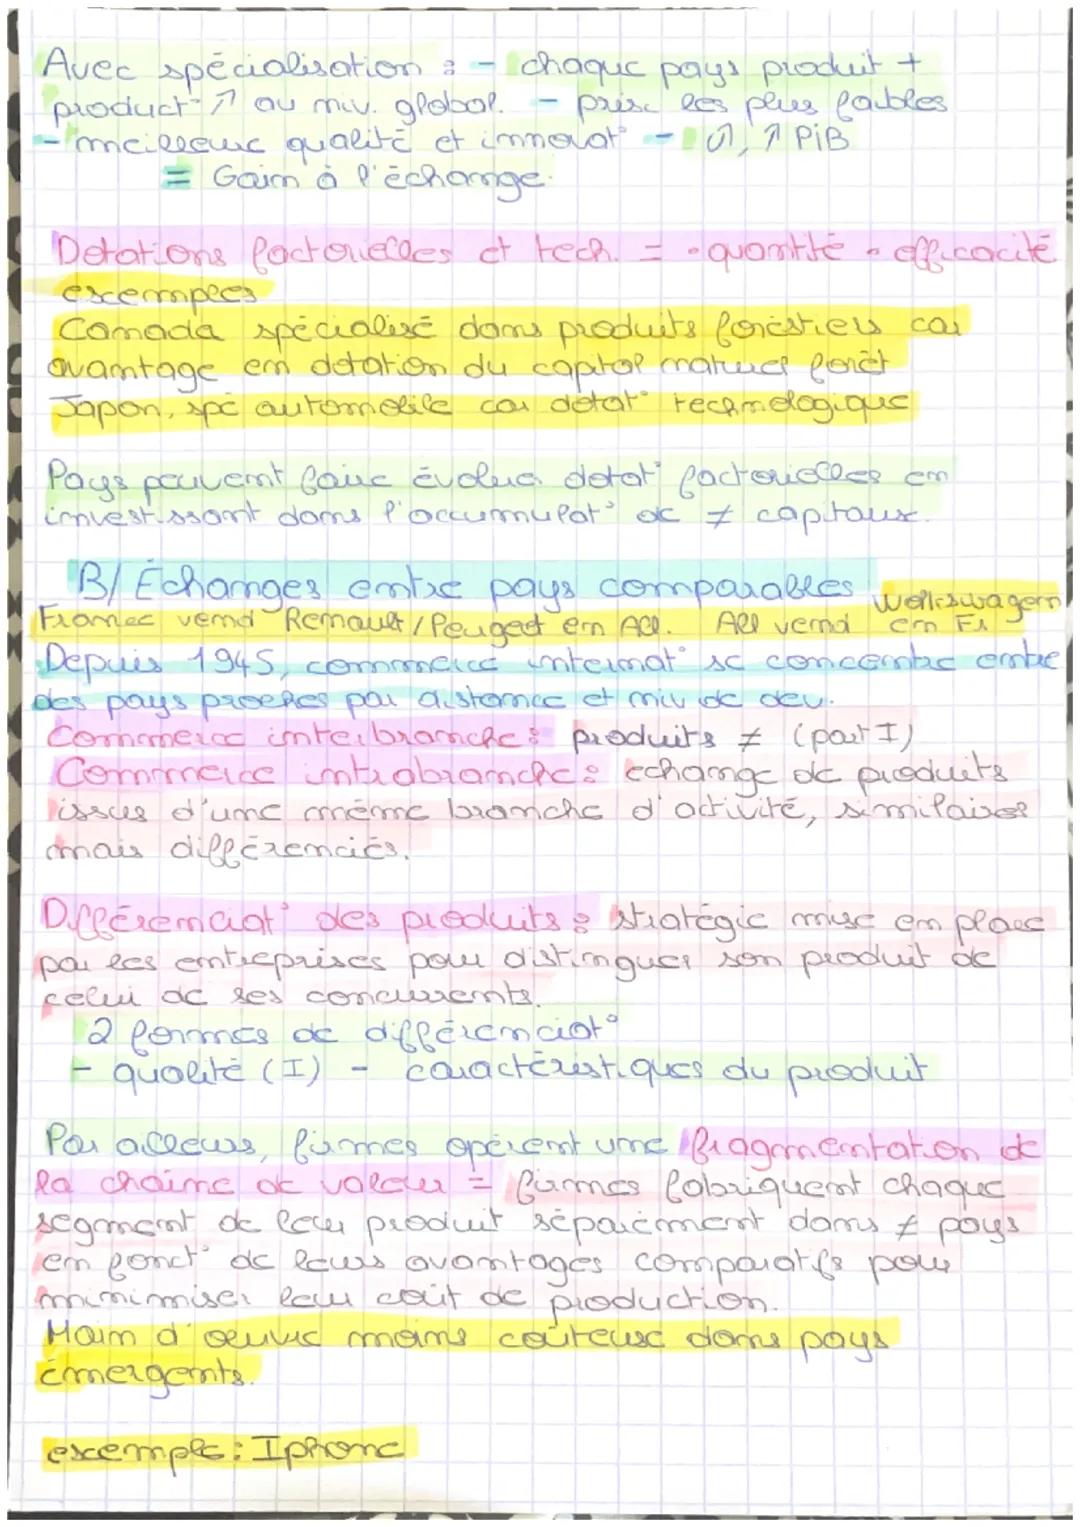 Avec spécialisation : - chaque pays produit +
product° ↗ au niv. global. - prix les plus faibles
- meilleure qualité et innovat° - ↗, ↗ PIB
= Gain à l'échange.
Dotations factorielles et tech. = • quantité • efficacité
exemples
Canada spécialisé dans produits forestiers car
avantage en dotation du capital naturel forêt
Japon, spé automobile car dotat° technologique
Pays peuvent faire évoluer dotat° factorielles en
investissant dans l'accumulat° de ≠ capitaux.
B/ Échanges entre pays comparables
France vend Renault / Peugeot en All. All vend Wolkswagen en Fr
Depuis 1945, commerce internat° se concentre entre
des pays proches par distance et niv de dev.
Commerce interbranche : produits ≠ (part I)
Commerce intrabranche : échange de produits
issus d'une même branche d'activité, similaires
mais différenciés.
Différenciat° des produits : stratégie mise en place
par les entreprises pour distinguer son produit de
celui de ses concurrents.
2 formes de différenciat°
- qualité (I) - caractéristiques du produit
Par ailleurs, firmes opèrent une fragmentation de
la chaîne de valeur = firmes fabriquent chaque
segment de leur produit séparément dans ≠ pays
en fonct° de leurs avantages comparatifs pour
minimiser leur coût de production.
Main d'œuvre moins coûteuse dans pays
émergents.
exemple : Iphone